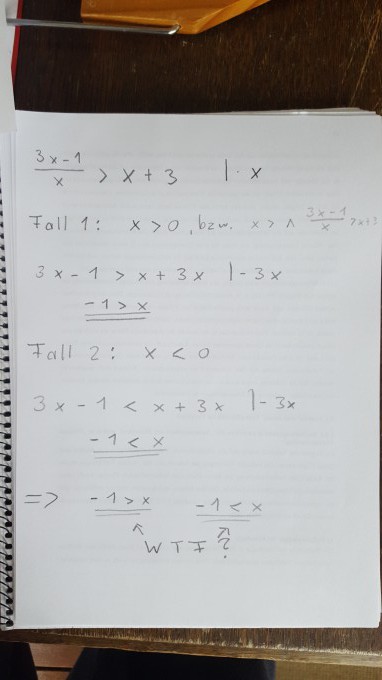 (3x-1)/x > x + 3 | · x
Fall 1: x > 0, bzw. x > ∧ (3x-1)/x > x+3
3x - 1 > x + 3x | - 3x
-1 > x
Fall 2: x < 0
3x - 1 < x + 3x | - 3x
-1 < x
=> -1 > x -1 < x
WTF?